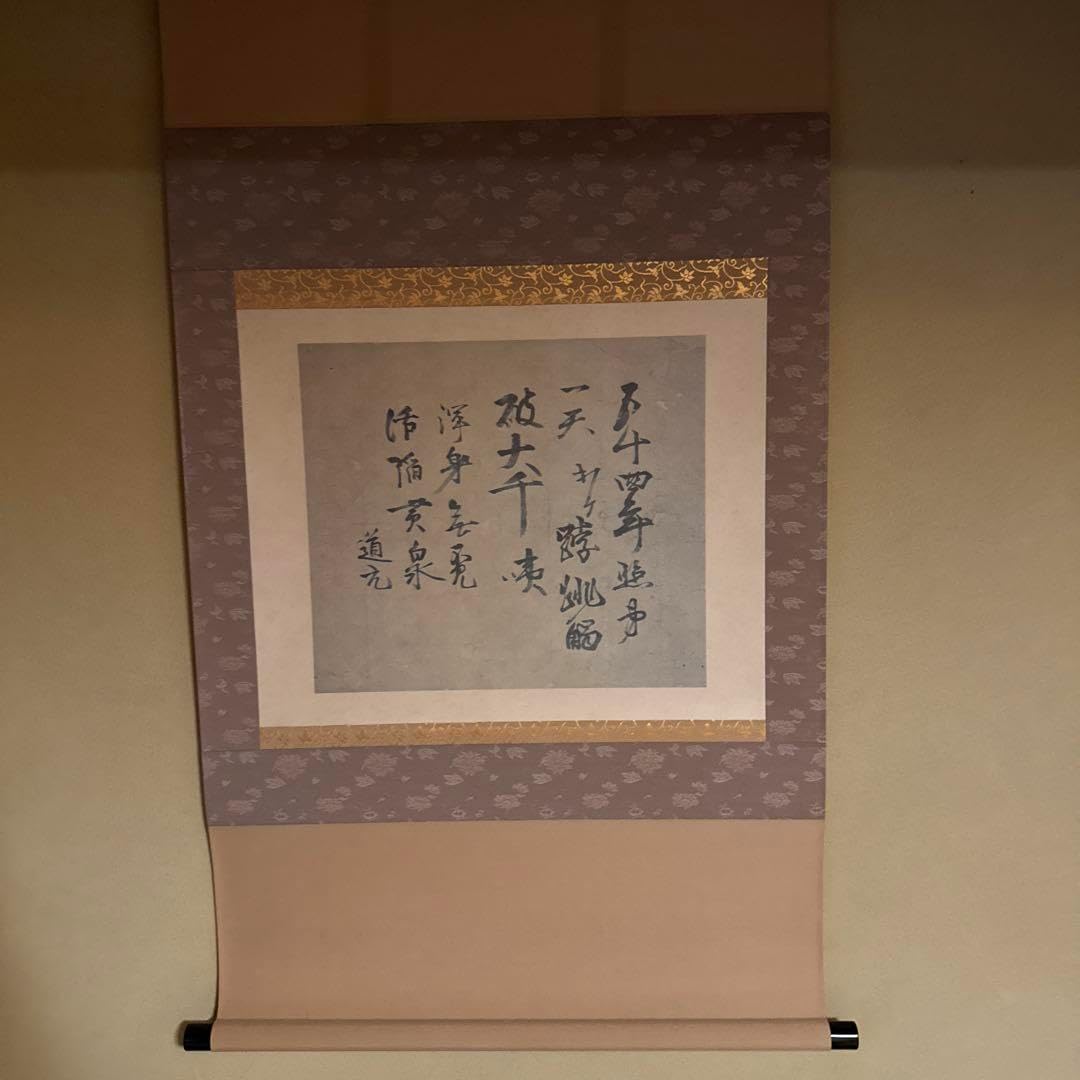 五十四年照第
一天打个𨁝跳觸
破大千咦
渾身無覓
活陷黄泉
道元